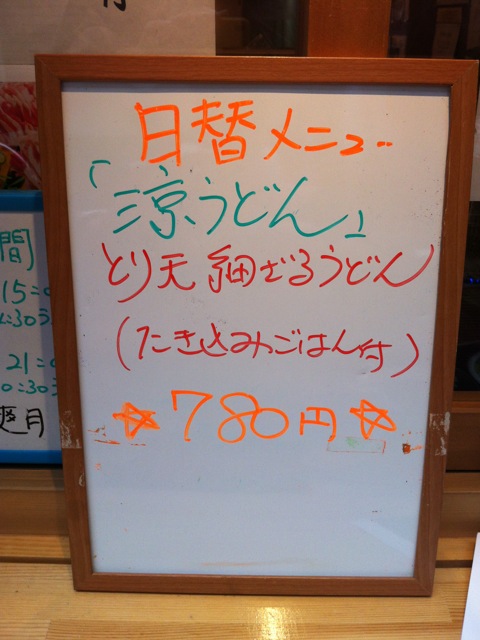 日替メニュー
「涼うどん」
とり天 細ざるうどん
(たき込みごはん付)
☆780円☆
間
15:0
21:0